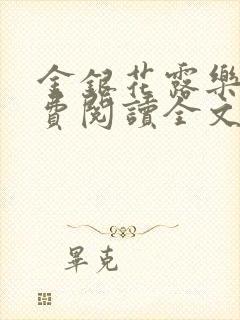 金銀花露樂
費閱讀全文
畢克